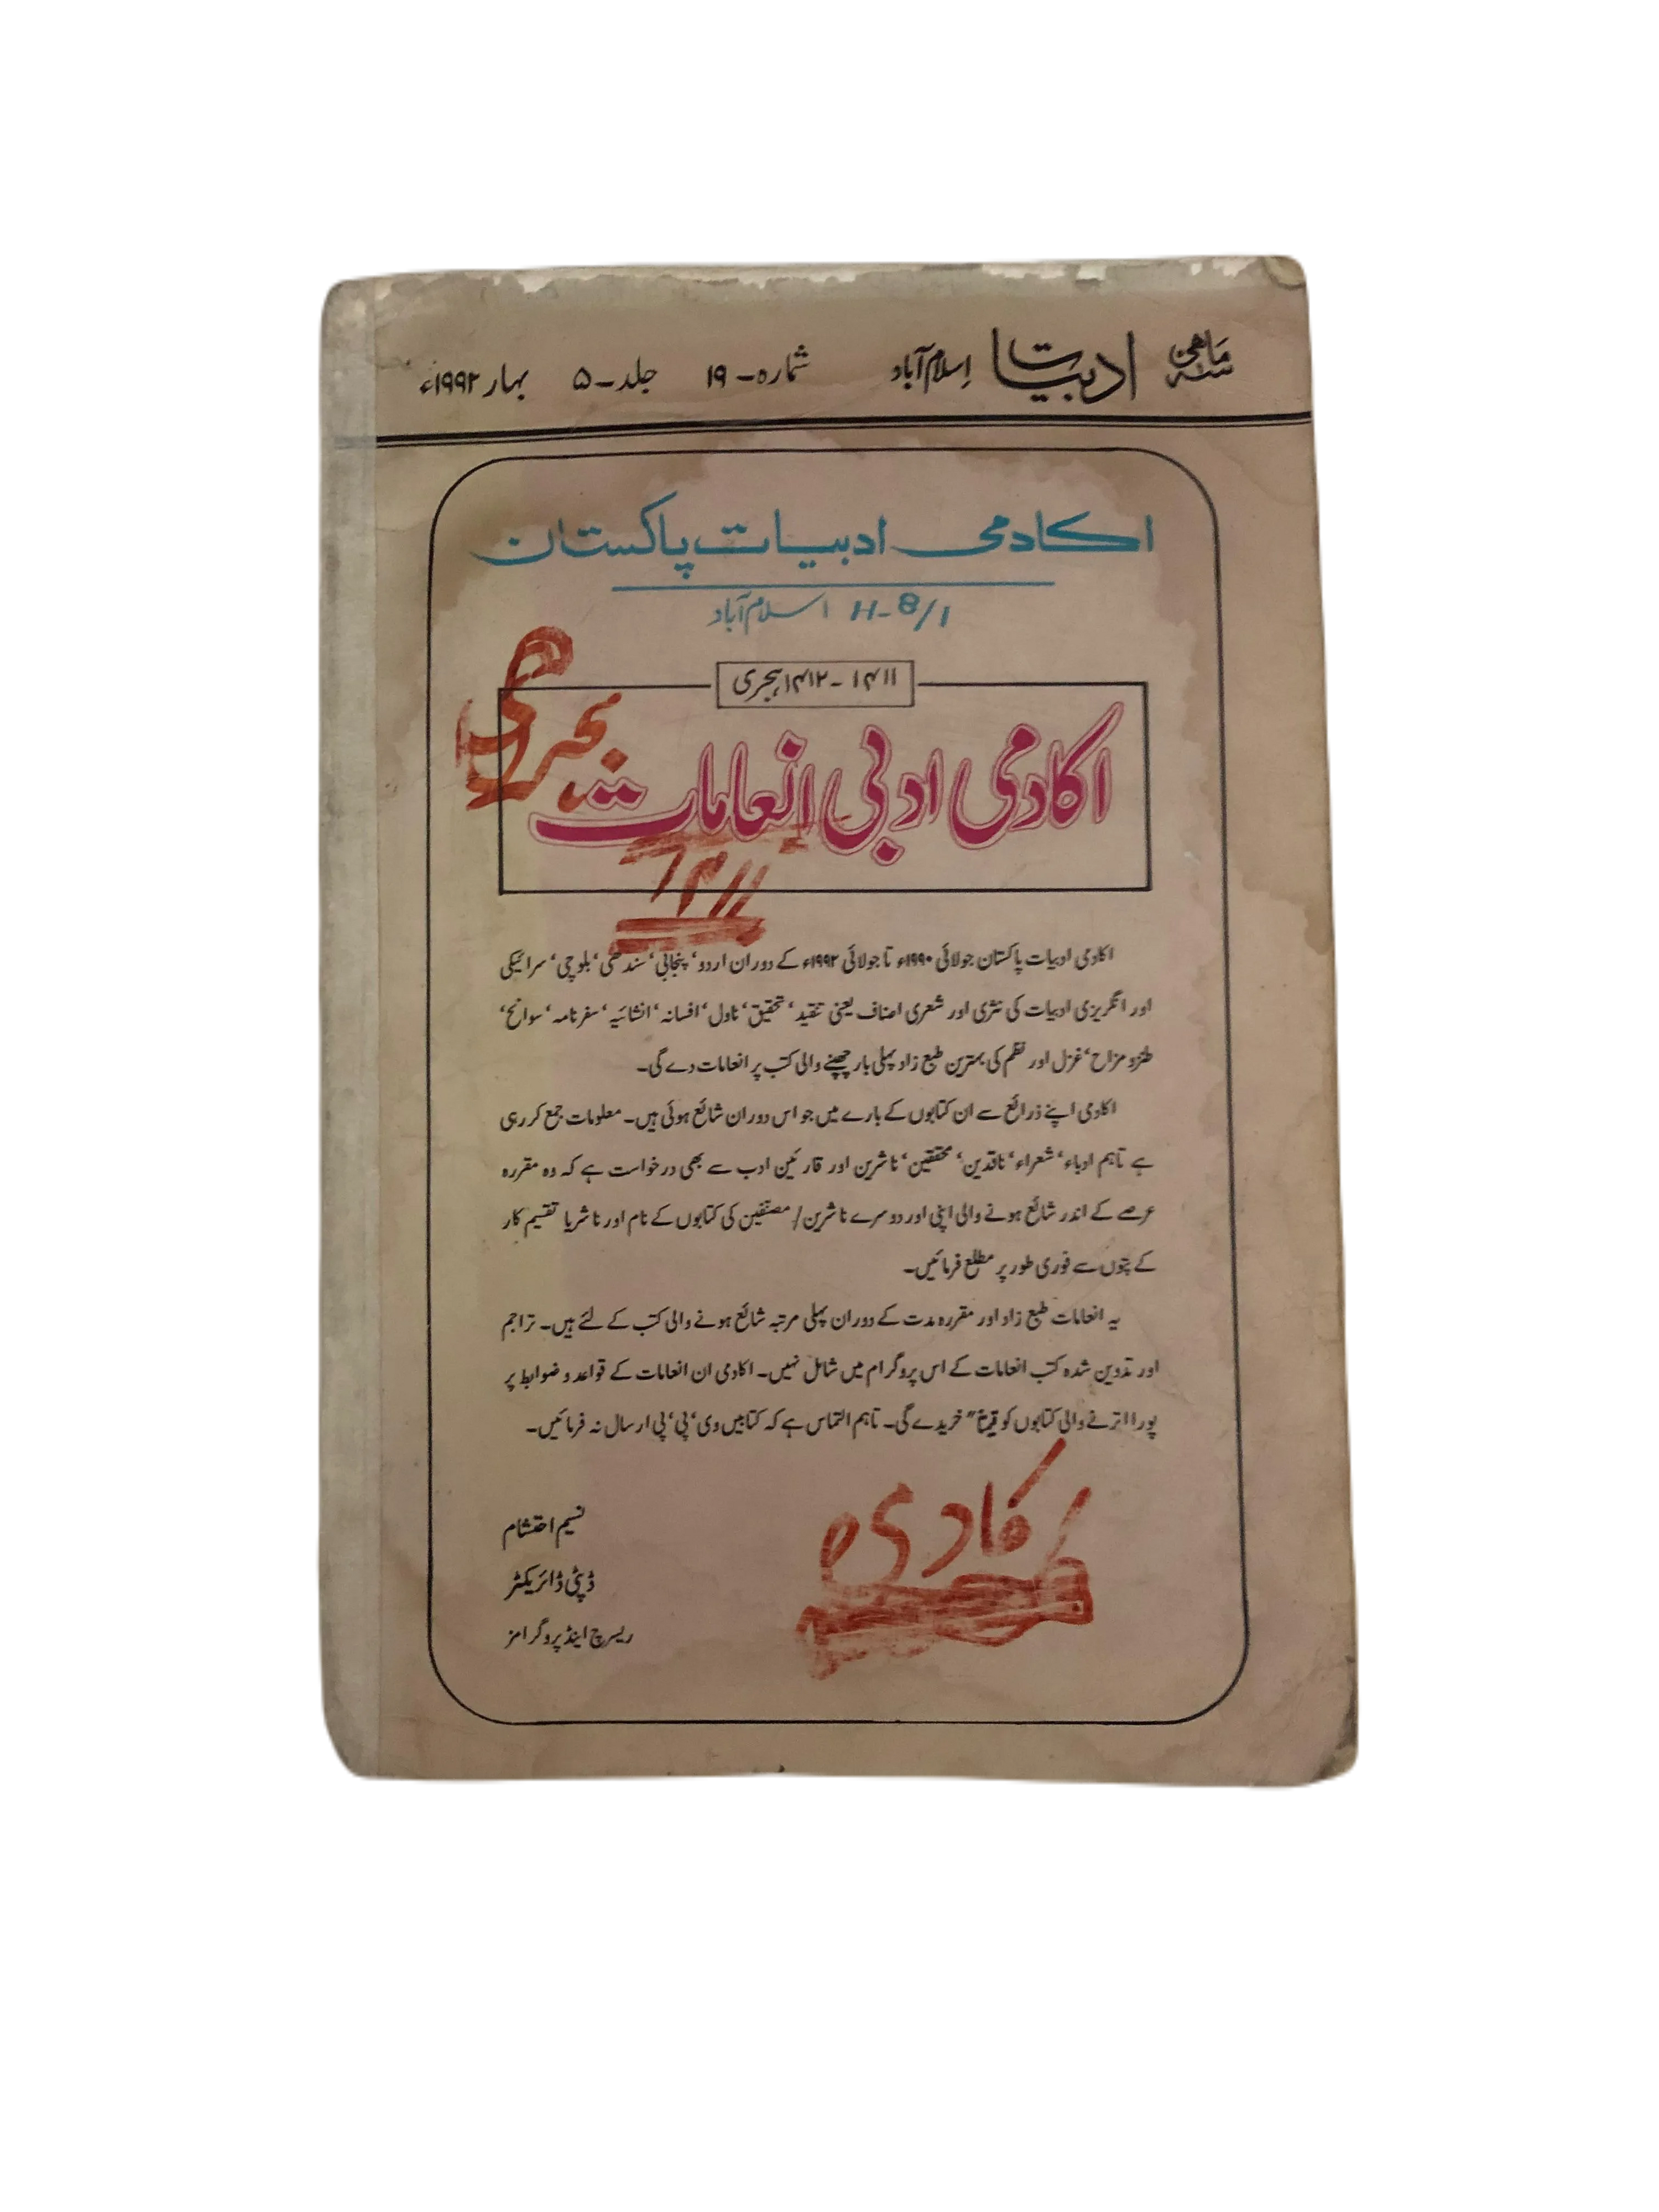 سہ ماہی ادبیات اسلام آباد شمارہ-۱۹ جلد-۵ بہار ۱۹۹۲ء
اکادمی ادبیات پاکستان
H-8/1 اسلام آباد
۱۴۱۱-۱۴۱۲ ہجری
اکادمی ادبی انعامات
۱۴۱۱
اکادمی ادبیات پاکستان جولائی ۱۹۹۰ء تا جولائی ۱۹۹۲ء کے دوران اردو، پنجابی، سندھی، بلوچی، سرائیکی
اور انگریزی ادبیات کی نثری اور شعری اصناف یعنی تنقید، تحقیق، ناول، افسانہ، انشائیہ، سفرنامہ، سوانح،
طنز و مزاح، غزل اور نظم کی بہترین طبع زاد پہلی بار چھپنے والی کتب پر انعامات دے گی۔
اکادمی اپنے ذرائع سے ان کتابوں کے بارے میں جو اس دوران شائع ہوئی ہیں۔ معلومات جمع کر رہی
ہے تاہم ادباء، شعراء، ناقدین، محققین، ناشرین اور قارئین ادب سے بھی درخواست ہے کہ وہ مقررہ
عرصے کے اندر شائع ہونے والی اپنی اور دوسرے ناشرین/مصنفین کی کتابوں کے نام اور ناشر یا تقسیم کار
کے پتوں سے فوری طور پر مطلع فرمائیں۔
یہ انعامات طبع زاد اور مقررہ مدت کے دوران پہلی مرتبہ شائع ہونے والی کتب کے لئے ہیں۔ تراجم
اور تدوین شدہ کتب انعامات کے اس پروگرام میں شامل نہیں۔ اکادمی ان انعامات کے قواعد و ضوابط پر
پورا اترنے والی کتابوں کو قیمتاً خریدے گی۔ تاہم التماس ہے کہ کتابیں وی، پی، پی ارسال نہ فرمائیں۔
نسیم احتشام
ڈپٹی ڈائریکٹر
ریسرچ اینڈ پروگرامز